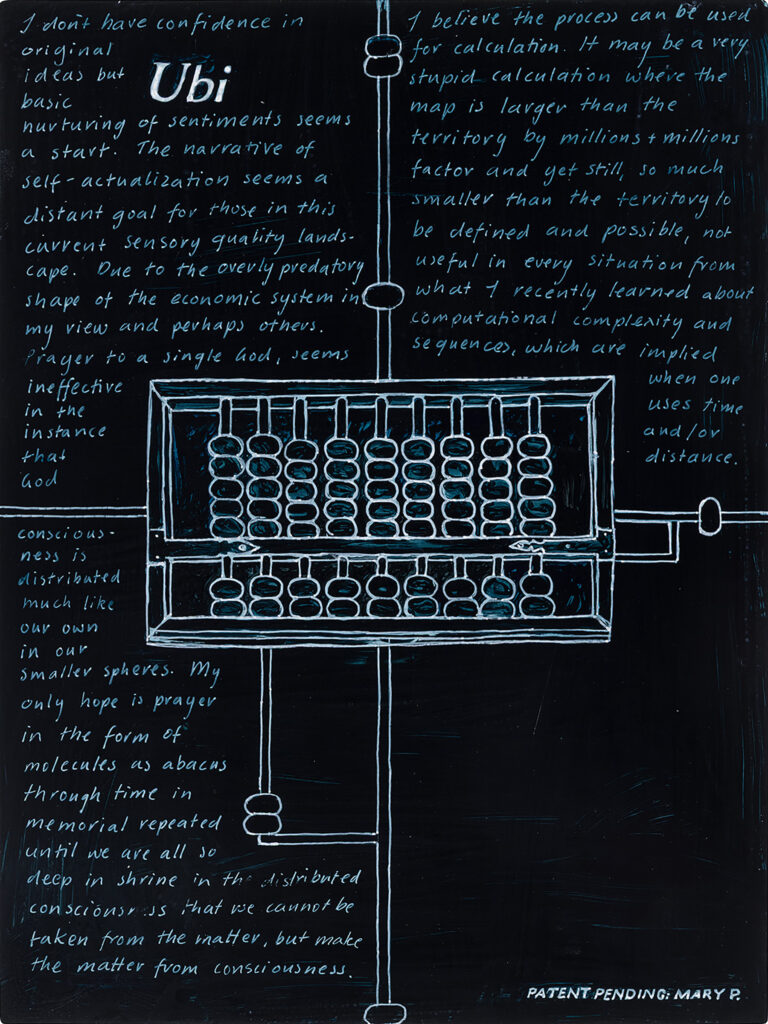 I don't have confidence in
original
ideas but
basic
nurturing of sentiments seems
a start. The narrative of
self-actualization seems a
distant goal for those in this
current sensory quality lands-
cape. Due to the overly predatory
shape of the economic system in
my view and perhaps others.
Prayer to a single God, seems
ineffective
in the
instance
that
God
conscious-
ness is
distributed
much like
our own
in our
smaller spheres. My
only hope is prayer
in the form of
molecules as abacus
through time in
memorial repeated
until we are all so
deep in shrine in the distributed
consciousness that we cannot be
taken from the matter, but make
the matter from consciousness.
Ubi
I believe the process can be used
for calculation. It may be a very
stupid calculation where the
map is larger than the
territory by millions + millions
factor and yet still, so much
smaller than the territory to
be defined and possible, not
useful in every situation from
what I recently learned about
computational complexity and
sequences, which are implied
when one
uses time
and/or
distance.
PATENT PENDING: MARY P.